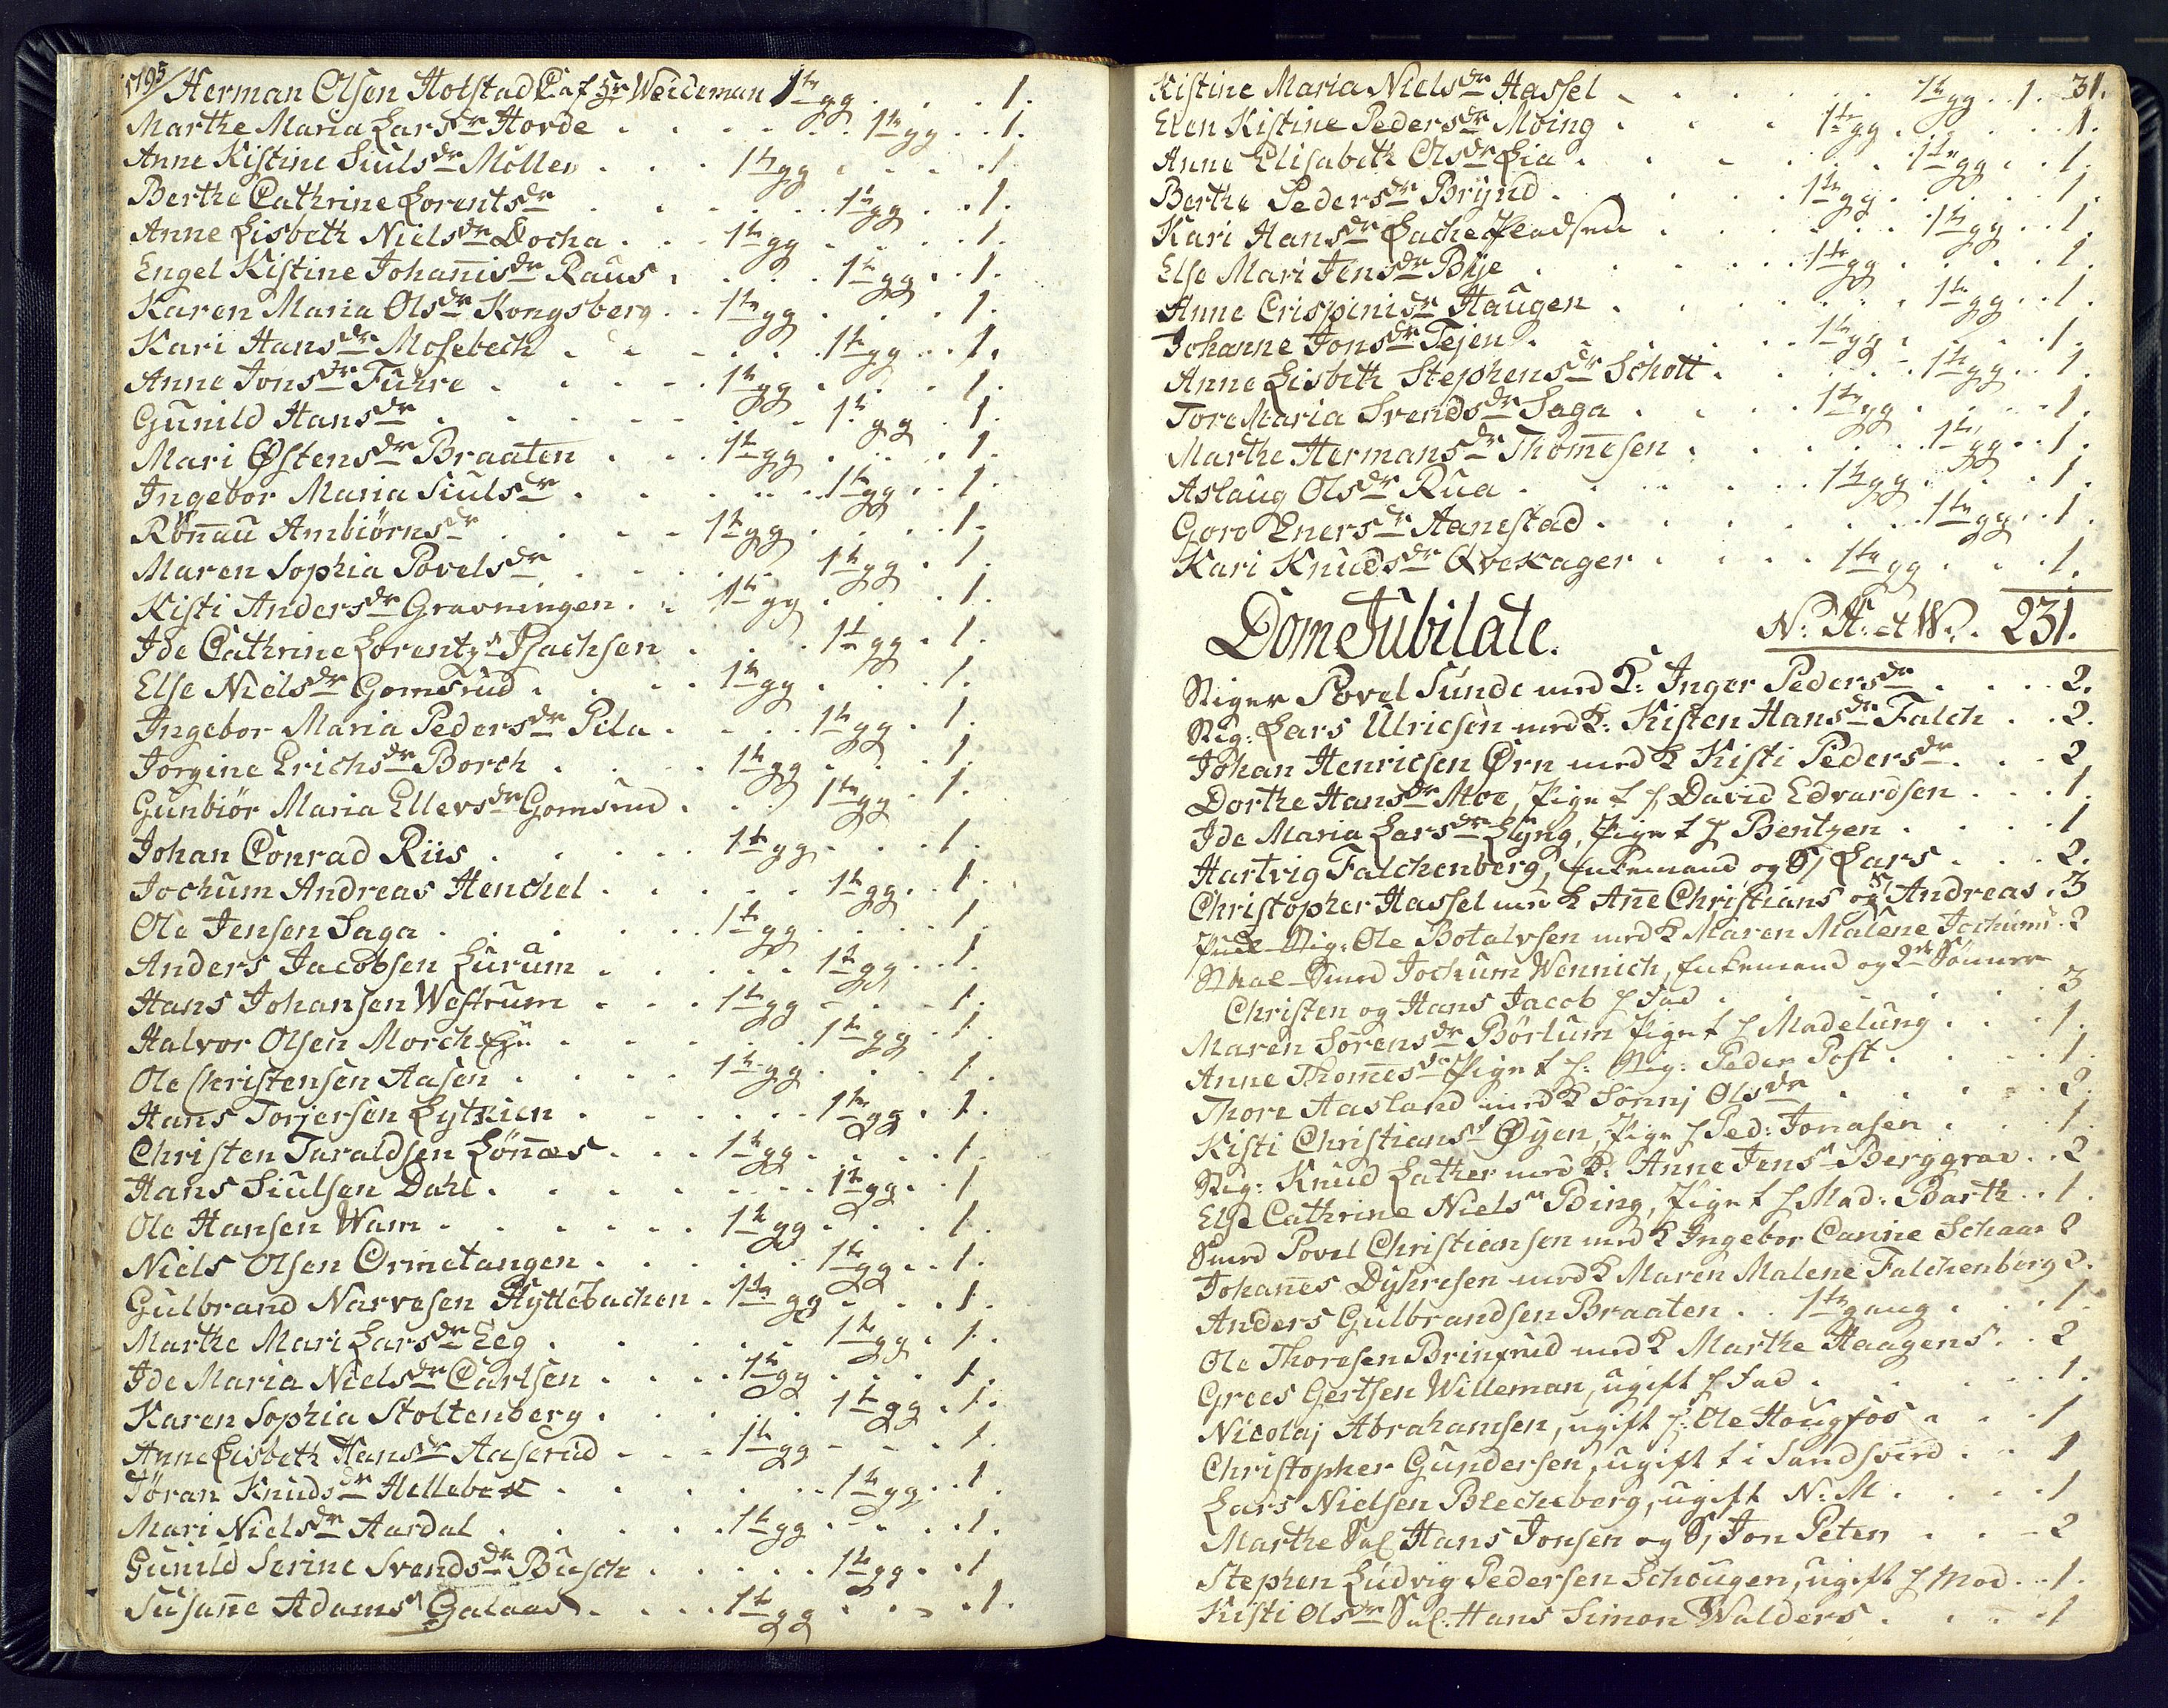 1795/ Herman Olsen Holstad C. af Hr Weideman 1te gg . . . 1.
Marthe Maria Larsdr Hovde . . . 1te gg . . 1.
Anne Kistine Siulsdr Möllen . . 1te gg . . . 1
Berthe Cathrine Lorentsdr . . . 1te gg . . 1.
Anne Lisbeth Nielsdr Docha . . 1te gg . . . 1.
Engel Kistine Johanisdr Raus . . . 1te gg . . 1.
Karen Maria Olsdr Kongsberg . . 1te gg . . . 1.
Kari Hansdr Mosebech . . . 1te gg . . 1.
Anne Jonsdr Fuhre . . . 1te gg . . . 1.
Gunild Hansdr . . . 1te gg . 1.
Mari Østensdr Braaten . . . 1te gg . . . 1.
Ingebor Maria Siulsdr . . . 1te gg . . 1.
Rönnau Ambiörnsdr . . . 1te gg . . . 1.
Maren Sophia Povelsdr . . . 1te gg . 1.
Kisti Andersdr Gravningen . . 1te gg . . . 1.
Ide Cathrine Lorentzdr Isachsen . . . 1te gg . 1.
Else Nielsdr Gomsrud . . . 1te gg . . . 1.
Ingebor Maria Pedersdr Pila . . . 1te gg . 1.
Jorgine Erichsdr Borch . . . 1te gg . . . 1.
Gunbiör Maria Ellevsdr Gomsrud . . . 1te gg . 1.
Johan Conrad Riis . . . 1te gg . . . 1.
Jochum Andreas Henchel . . . 1te gg . . 1.
Ole Jensen Saga . . . 1te gg . . . 1.
Anders Jacobsen Lurum . . . 1te gg . . 1.
Hans Johansen Westrum . . . 1te gg . . . 1.
Halvor Olsen Morch . . . 1te gg . 1.
Ole Christensen Aasen . . . 1te gg . . . 1.
Hans Torjersen Lytrien . . . 1te gg . 1.
Christen Taraldsen Lönnæs . . . 1te gg . . . 1.
Hans Siulsen Dahl . . . 1te gg . . 1
Ole Hansen Wam . . . 1te gg . . . 1.
Niels Olsen Ormetangen . . . 1te gg . . 1.
Gulbrand Narvesen Hyttebachen . 1te gg . . . 1.
Marthe Mari Larsdr Eeg . . . 1te gg . 1.
Ide Maria Nielsdr Carlsen . . . 1te gg . . . 1.
Karen Sophia Stoltenberg . . . 1te gg . 1.
Anne Lisbeth Hansdr Aaserud . . . 1te gg . . . 1.
Jöran Knudsdr Hellebek . . . 1te gg . . 1.
Mari Nielsdr Aardal . . . 1te gg . . . 1.
Gunild Serine Svendsdr Busch . . . 1te gg . . 1
Susanne Adamsdr Galaas . . . 1te gg . . . 1.
Kistine Maria Nielsdr Hassel . . . 1te gg . . 1. 31.
Elen Kistine Pedersdr Moing . . . 1te gg . . . 1.
Anne Elisabeth Olsdr Lia . . . 1te gg . . 1.
Berthe Pedersdr Brynd . . . 1te gg . . . 1.
Kari Hansdr Lache Pladsen . . . 1te gg . . 1.
Else Mari Jensdr Bye . . . 1te gg . . . 1.
Anne Crispinisdr Haugen . . . 1te gg . . 1.
Johanne Jonsdr Tejen . . . 1te gg . . . 1.
Anne Lisbeth Stephensdr Schott . . . 1te gg . . 1.
Tore Maria Svendsdr Saga . . . 1te gg . . . 1.
Marthe Hermansdr Thomesen . . . 1te gg . . 1.
Aslaug Olsdr Rua . . . 1te gg . . . 1.
Goro Enersdr Aanestad . . . 1te gg . . 1.
Kari Knudsdr Qvekager . . . 1te gg . . . 1.
Dom. Jubilate. N: H: et W: . 231.
Stiger Povel Sunde med K: Inger Pedersdr . . . 2.
Stig: Lars Ulricsen med K: Kisten Hansdr Falch . . 2.
Johan Henricsen Ørn med K Kisti Pedersdr . . . 2
Dorthe Hansdr Moe, Pige t h David Edvardsen . . . 1.
Ide Maria Larsdr Lyng, Pige t h Bentzen . . . 1
Hartvig Falchenberg, Enkemand og S/ Lars . . . 2.
Christopher Hassel med K Ane Christians og S/ Andreas . 3
Stig: Ole Botolvsen med K Maren Malene Jochums . 2
Smed Jochum Wennich, Enkemand og 2de Sönner
Christen og Hans Jacob h Fad . . . 3
Maren Sörensdr Börlum Pige t h Madelung . . . 1.
Anne Thomesdr Pige t h: Stig: Peder Post . . . 1.
Thore Aasland med K Sönnj Olsdr . . . 2.
Kisti Christiansdr Øyen, Pige h Ped: Jonasen . . 1.
Stig: Knud Lather med K: Anne Jensdr Berggrav . . 2
Else Cathrine Nielsdr Bing, Pige t h Mad: Barth . . 1.
Smed Povel Christiansen med K Ingebor Canine Schaar 2
Johannes Dyhresen med K Maren Malene Falchenberg 2.
Anders Gulbrandsen Braaten . . 1te gang . . . 1.
Ole Thoresen Bringrud med K Marthe Haagens . . 2
Grees Gertsen Willeman, ugift h Fad . . . 1.
Nicolaj Abrahamsen, ugift h: Ole Hougfos . . . 1
Christopher Gundersen, ugift t i Sandsverd . . 1
Lars Nielsen Blecheberg, ugift N: M . . . 1
Marthe Sal Hans Jonsen og S/ Jon Peter . . . 2
Stephen Ludvig Pedersen Schougen, ugift h Mod . . 1.
Kisti Olsdr Sal: Hans Simon Walders . . . 1